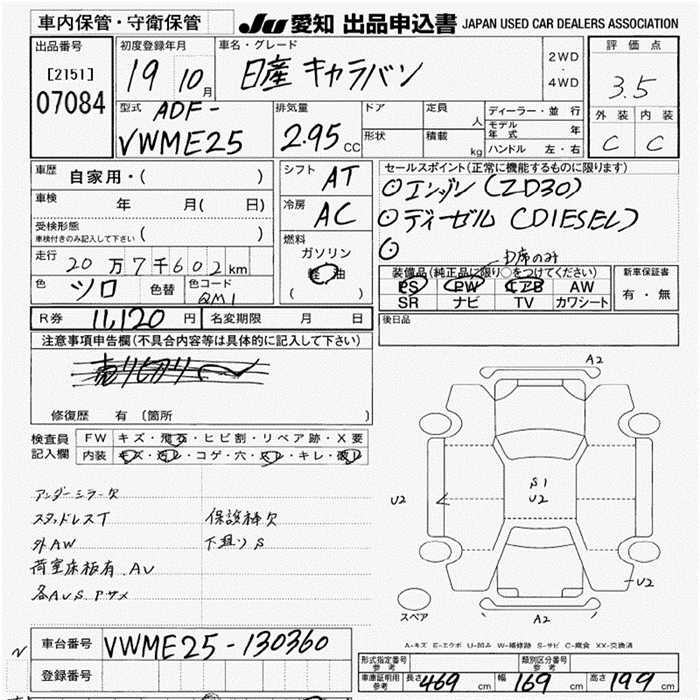 車内保管・守衛保管
JU 愛知 出品申込書 JAPAN USED CAR DEALERS ASSOCIATION
出品番号
[2151]
07084
初度登録年月
19 10月
車名・グレード
日産 キャラバン
2WD
・
4WD
評価点
3.5
外装 内装
C C
型式 ADF-
VWME25
排気量
2.95 CC
ドア
形状
定員 人
積載 kg
ディーラー・並行
モデル年式 年
ハンドル 左・右
車歴 自家用・( )
車検 年 月( 日)
受検形態
車検付きのみ記入して下さい ( )
走行 20万7千602km
色 ツロ 色替 色コード QM1
シフト AT
冷房 AC
燃料
ガソリン
軽油
( )
セールスポイント(正常に機能するものに限ります)
○エンジン(ZD30)
○ディーゼル(DIESEL)
○
D席のみ
装備品(純正品に限り○をつけてください)
PS PW エアB AW
SR ナビ TV カワシート
新車保証書
有・無
R券 11,120円 名変期限 月 日
後日品
注意事項申告欄(不具合内容等は具体的に記入して下さい)
売り切り
修復歴 有 (箇所 )
検査員記入欄
FW キズ・飛石・ヒビ割・リペア跡・X要
内装 キズ・汚レ・コゲ・穴・スレ・キレ・破レ
アンダーミラー欠
スタッドレスT 保護棒欠
外AW 下廻りS
荷室床板有.AU
各AUS.Pサメ
A2
S1
U2
U2
U2
スペア
A2
A-キズ E-エクボ U-凹み W-補修跡 S-サビ C-腐食 XX-交換済
N
車台番号 VWME25-130360
登録番号
型式指定番号参考
類別区分番号参考
車庫証明用参考 長さ 469cm 幅 169cm 高さ 199cm